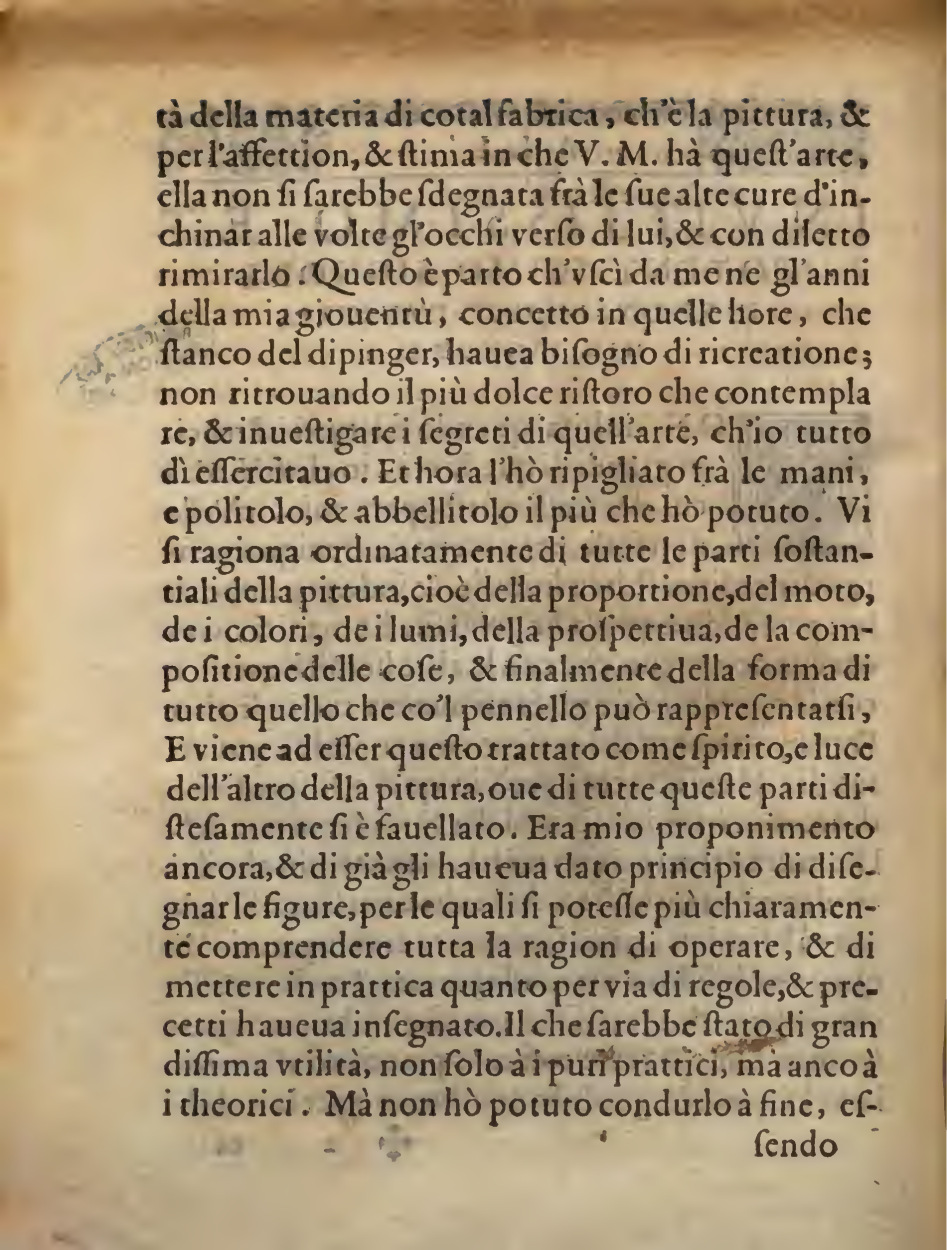 tà della materia di cotal fabrica, ch'è la pittura, &
per l'affettion, & ſtima in che V. M. hà queſt'arte,
ella non ſi ſarebbe ſdegnata frà le ſue alte cure d'in-
chinar alle volte gl'occhi verſo di lui, & con diletto
rimirarlo. Queſto è parto ch'vſcì da me ne gl'anni
della mia giouentù, concetto in quelle hore, che
ſtanco del dipinger, hauea biſogno di ricreatione;
non ritrouando il più dolce riſtoro che contempla
re, & inueſtigare i ſegreti di quell'arte, ch'io tutto
dì eſſercitauo. Et hora l'hò ripigliato frà le mani,
e politolo, & abbellitolo il più che hò potuto. Vi
ſi ragiona ordinatamente di tutte le parti ſoſtan-
tiali della pittura, cioè della proportione, del moto,
de i colori, de i lumi, della proſpettiua, de la com-
poſitione delle coſe, & finalmente della forma di
tutto quello che co'l pennello può rappreſentarſi,
E viene ad eſſer queſto trattato come ſpirito, e luce
dell'altro della pittura, oue di tutte queſte parti di-
ſteſamente ſi è fauellato. Era mio proponimento
ancora, & di già gli haueua dato principio di diſe-
gnar le figure, per le quali ſi poteſſe più chiaramen-
te comprendere tutta la ragion di operare, & di
mettere in prattica quanto per via di regole, & pre-
cetti haueua inſegnato. Il che ſarebbe ſtato di gran
diſſima vtilità, non ſolo à i puri prattici, mà anco à
i theorici. Mà non hò potuto condurlo à fine, eſ-
ſendo